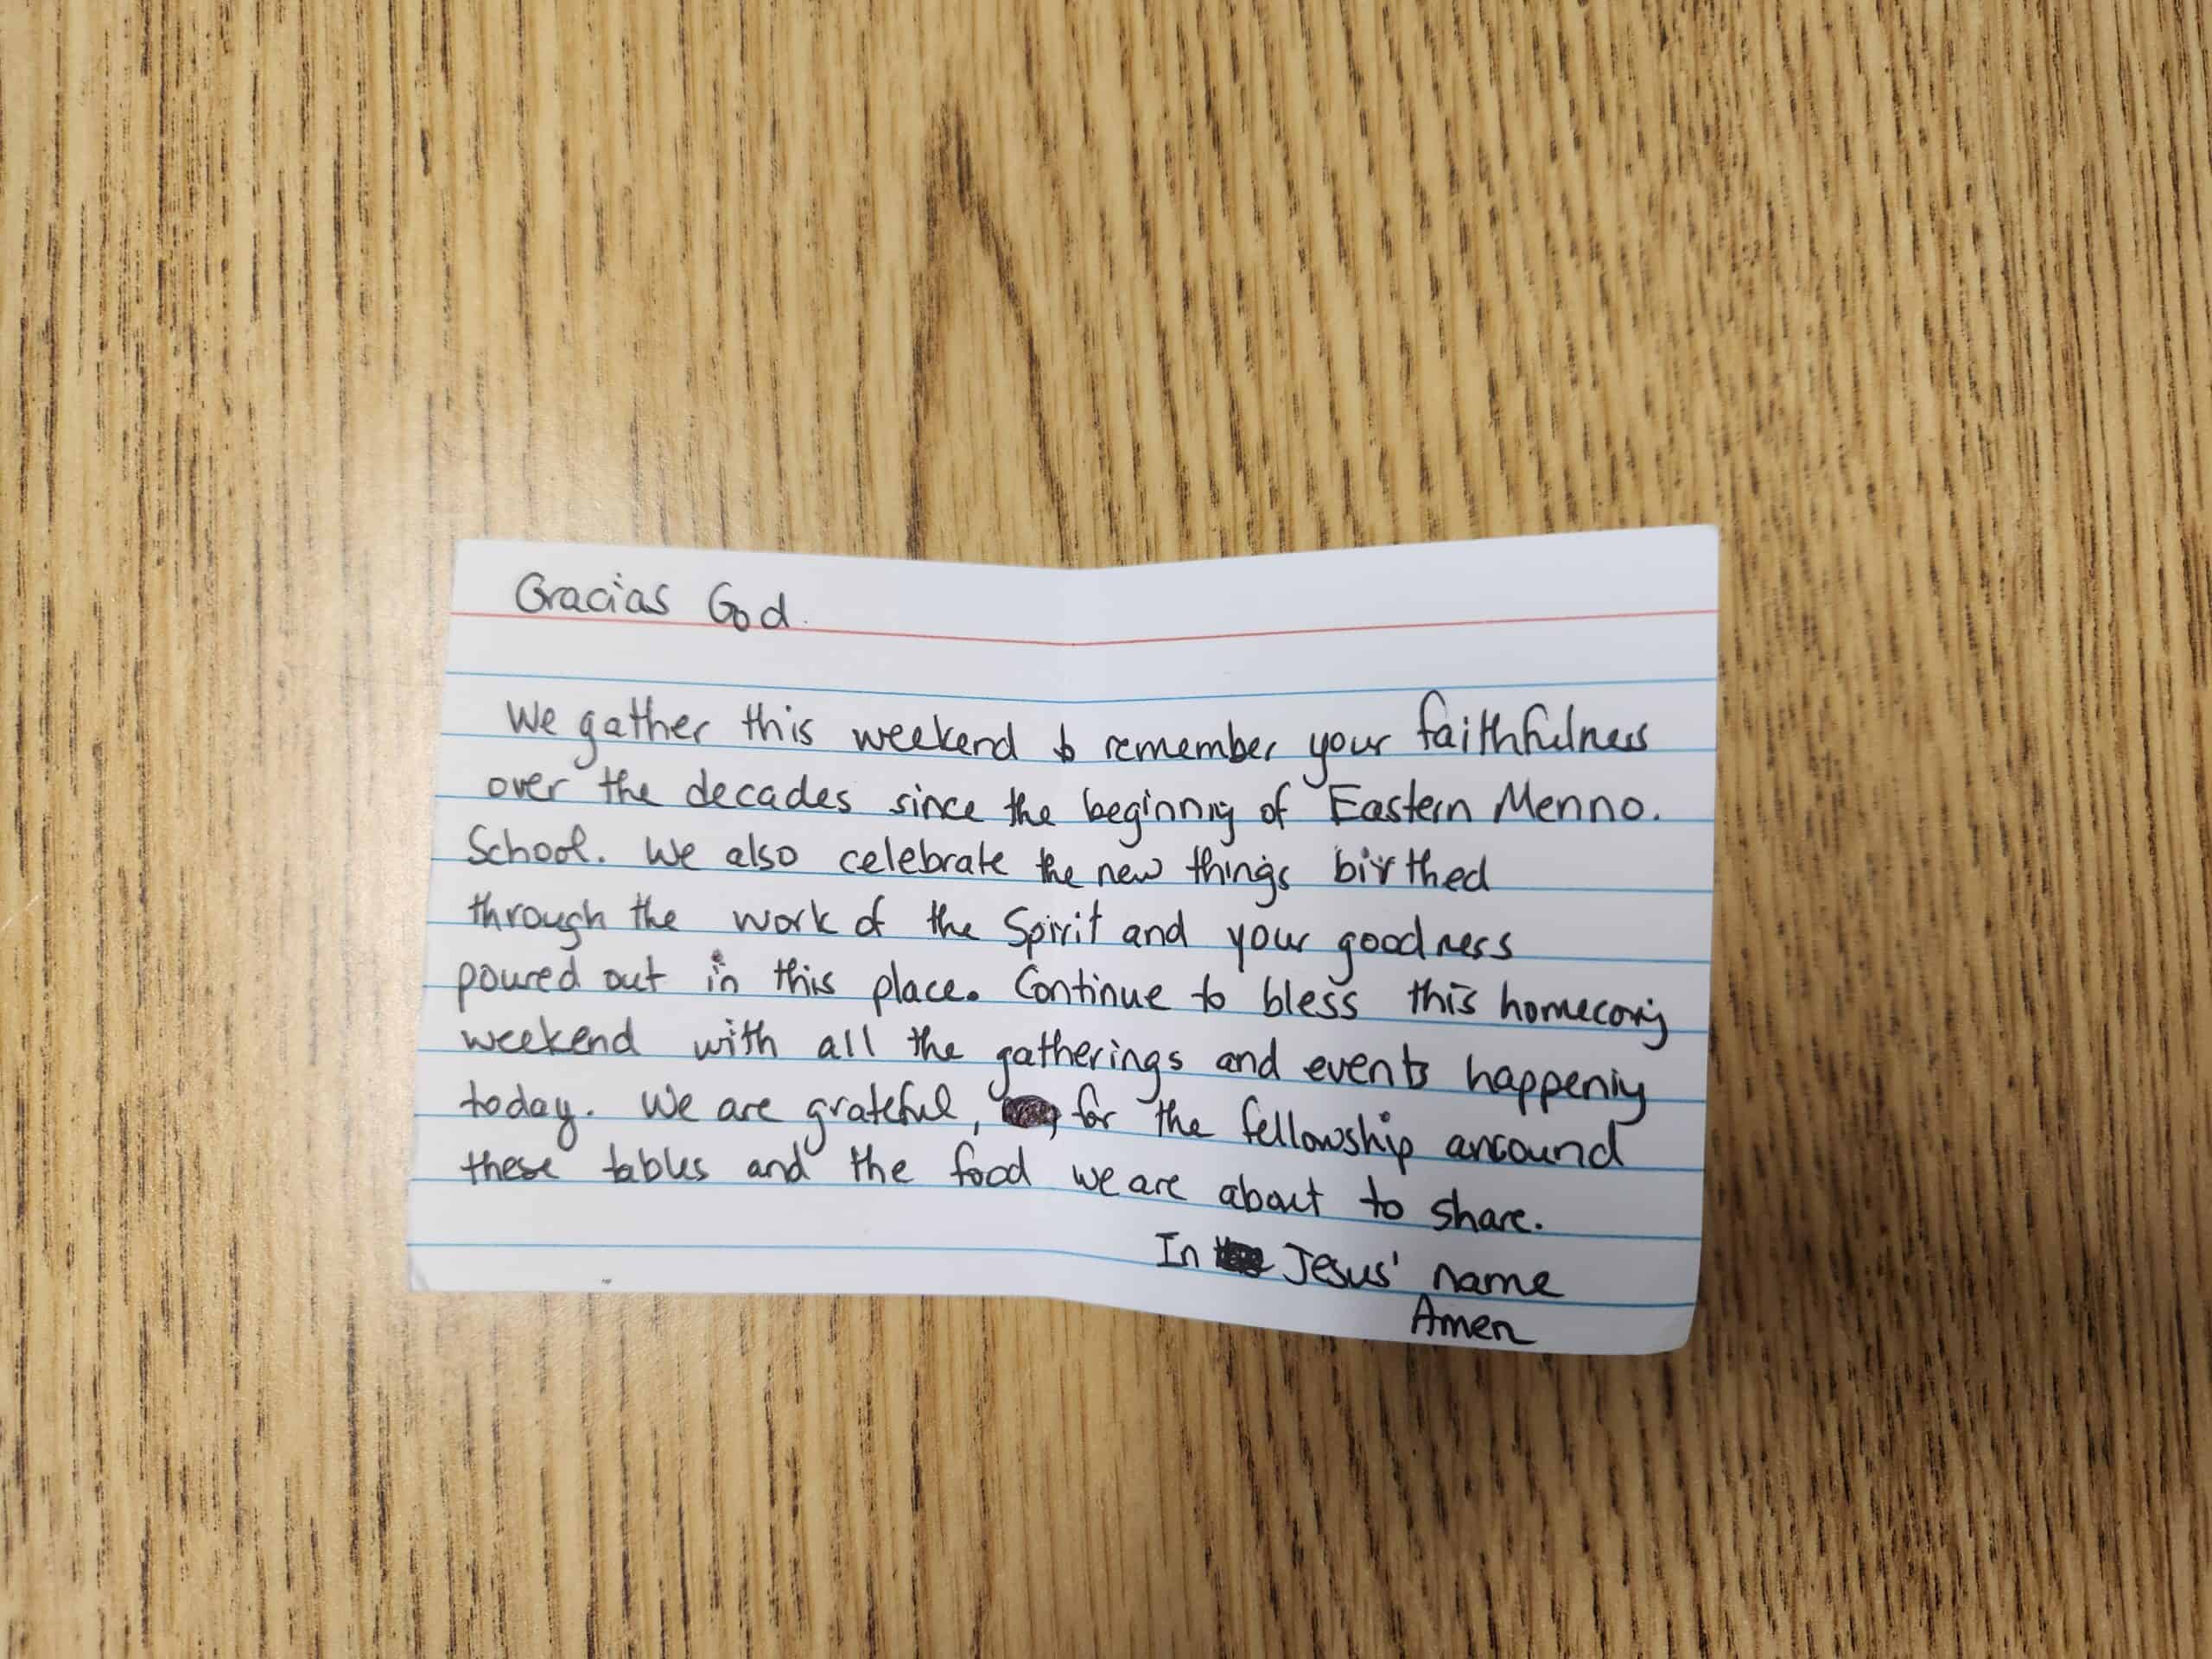 Gracias God.
We gather this weekend to remember your faithfulness
over the decades since the beginning of Eastern Menno.
School. We also celebrate the new things birthed
through the work of the Spirit and your goodness
poured out in this place. Continue to bless this homecoming
weekend with all the gatherings and events happening
today. We are grateful, for the fellowship around
these tables and the food we are about to share.
In Jesus' name
Amen